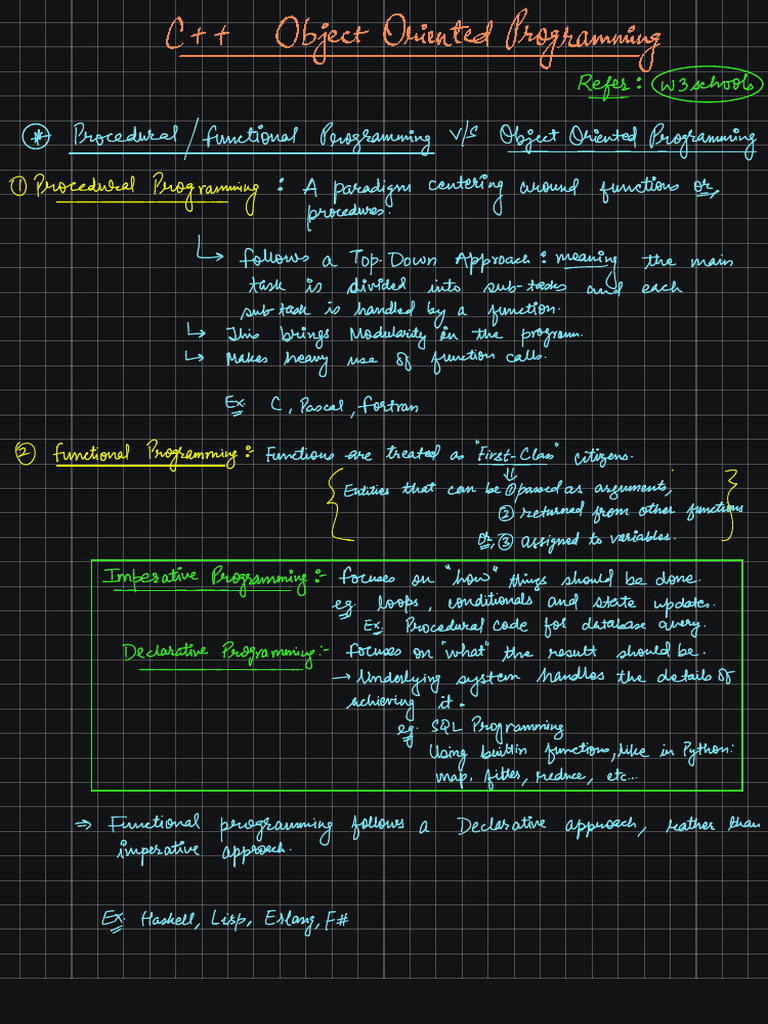 C++ Object Oriented Programming
Refer: W3schools
* Procedural / Functional Programming v/s Object Oriented Programming
① Procedural Programming : A paradigm centering around functions or,
procedures.
↳ follows a Top-Down Approach : meaning the main
task is divided into sub-tasks and each
sub task is handled by a function.
↳ This brings Modularity in the program.
↳ Makes heavy use of function calls.
Ex. C, Pascal, Fortran
② Functional Programming :- Functions are treated as "First-Class" citizens.
⇓
{ Entities that can be ① passed as arguments;
② returned from other functions
or, ③ assigned to variables. }
Imperative Programming :- focuses on "how" things should be done.
eg. loops, conditionals and state updates.
Ex. Procedural code for database query.
Declarative Programming :- focuses on "what" the result should be.
→ Underlying system handles the details of
achieving it.
eg. SQL Programming
Using builtin functions, like in Python:
map, filter, reduce, etc...
⇒ Functional programming follows a Declarative approach, rather than
imperative approach.
Ex. Haskell, Lisp, Erlang, F#